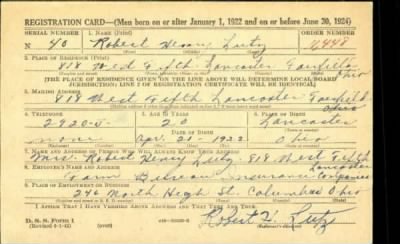 REGISTRATION CARD—(Men born on or after January 1, 1922 and on or before June 30, 1924)
SERIAL NUMBER 1. NAME (Print) ORDER NUMBER
N 40 Robert Henry Lutz
2. PLACE OF RESIDENCE (Print)
818 West Fifth Lancaster Fairfield Ohio
[THE PLACE OF RESIDENCE GIVEN ON THE LINE ABOVE WILL DETERMINE LOCAL BOARD
JURISDICTION; LINE 2 OF REGISTRATION CERTIFICATE WILL BE IDENTICAL]
3. MAILING ADDRESS
818 West Fifth Lancaster Fairfield Ohio
4. TELEPHONE 5. AGE IN YEARS 6. PLACE OF BIRTH
2920-J 20 Lancaster
DATE OF BIRTH
none Apr. 20 - 1922 Ohio
7. NAME AND ADDRESS OF PERSON WHO WILL ALWAYS KNOW YOUR ADDRESS
Mrs. Robert Henry Lutz, 818 West Fifth Lancaster
8. EMPLOYER'S NAME AND ADDRESS
Farm Bureau Insurance Companies
9. PLACE OF EMPLOYMENT OR BUSINESS
246 North High St. Columbus Ohio
I AFFIRM THAT I HAVE VERIFIED ABOVE ANSWERS AND THAT THEY ARE TRUE.
D. S. S. Form 1 (over)
Robert H. Lutz